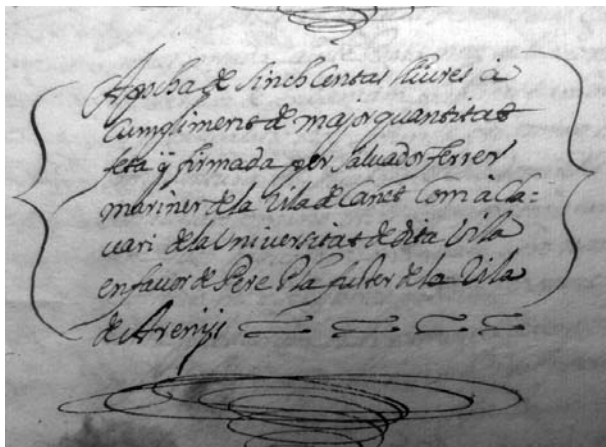 Apocha de sinch Centas lliures à
Cumpliment de major quantitat
feta ÿ firmada per Salvador Ferrer
mariner de la Vila de Canet Com à Cla=
uari de la Universitat de dita Vila
en fauor de Pere Pla fuster de la Vila
de Arenÿs